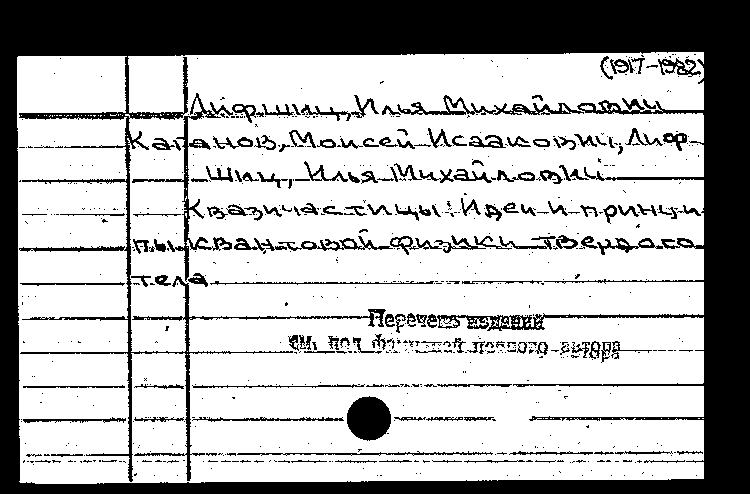 (1917-1982)
Лифшиц, Илья Михайлович
Каганов, Моисей Исаакович, Лиф-
шиц, Илья Михайлович.
Квазичастицы: Идеи и принци-
пы квантовой физики твердого
тела.
Перечень изданий
см. под фамилией первого автора